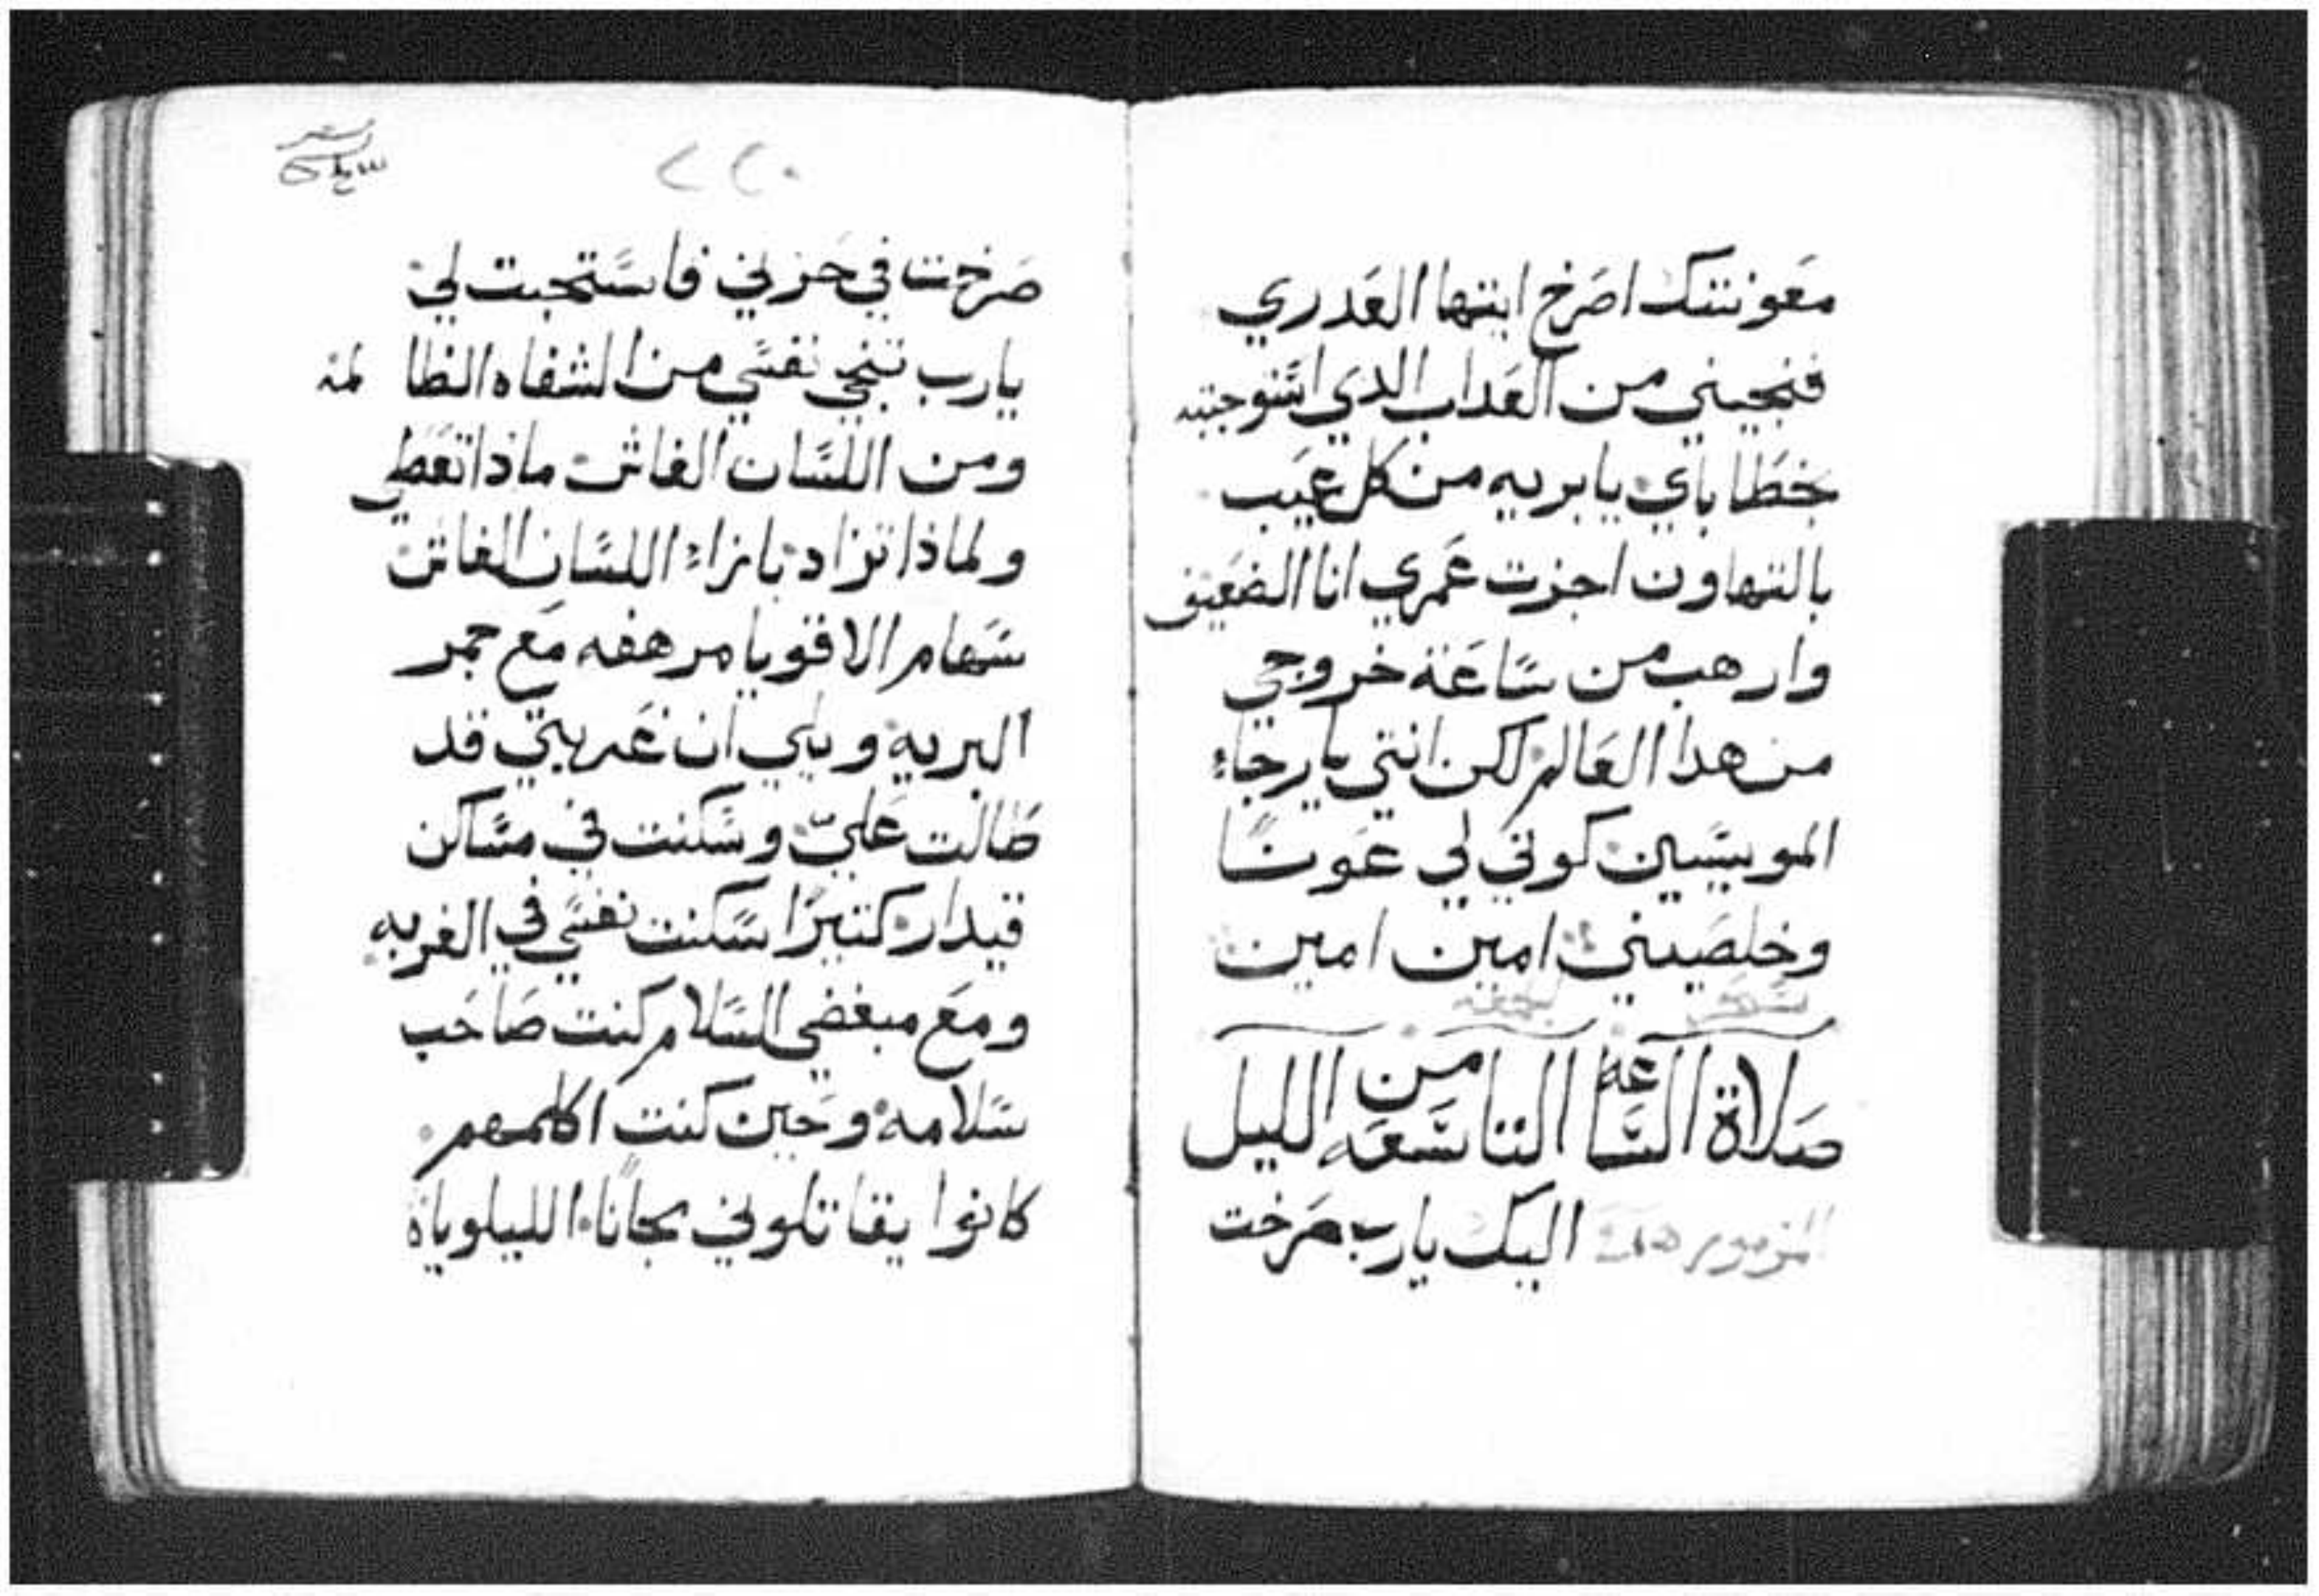 معونتك اصرخ ايتها العدري
فنجيني من العداب الدي اشتوجبته
خطاياي يا بريه من كل عيب
بالتهاون اجزت عمري انا الضعيف
وارهب من ساعة خروجي
من هدا العالم لكن انتي يا رجاء
المويسين كوني لي عونًا
وخلصيني امين امين
صلاة الساعة التاسعه من الليل
المزمور اليك يارب صرخت
٢٢٠
صرخت في حزني فاستجبت لي
يارب تنجي نفسي من الشفاه الظالمة
ومن اللسان الغاش ماذا تعطي
ولماذا تزاد بازاء اللسان الغاش
سهام الاقويا مرهفه مع جمر
البريه ويلي ان غربتي قد
طالت عليّ وسكنت في مساكن
قيدار كتيرًا سكنت نفسي في الغربه
ومع مبغضي السلام كنت صاحب
سلامه وحين كنت اكلمهم
كانوا يقاتلوني مجانًا الليلوياة